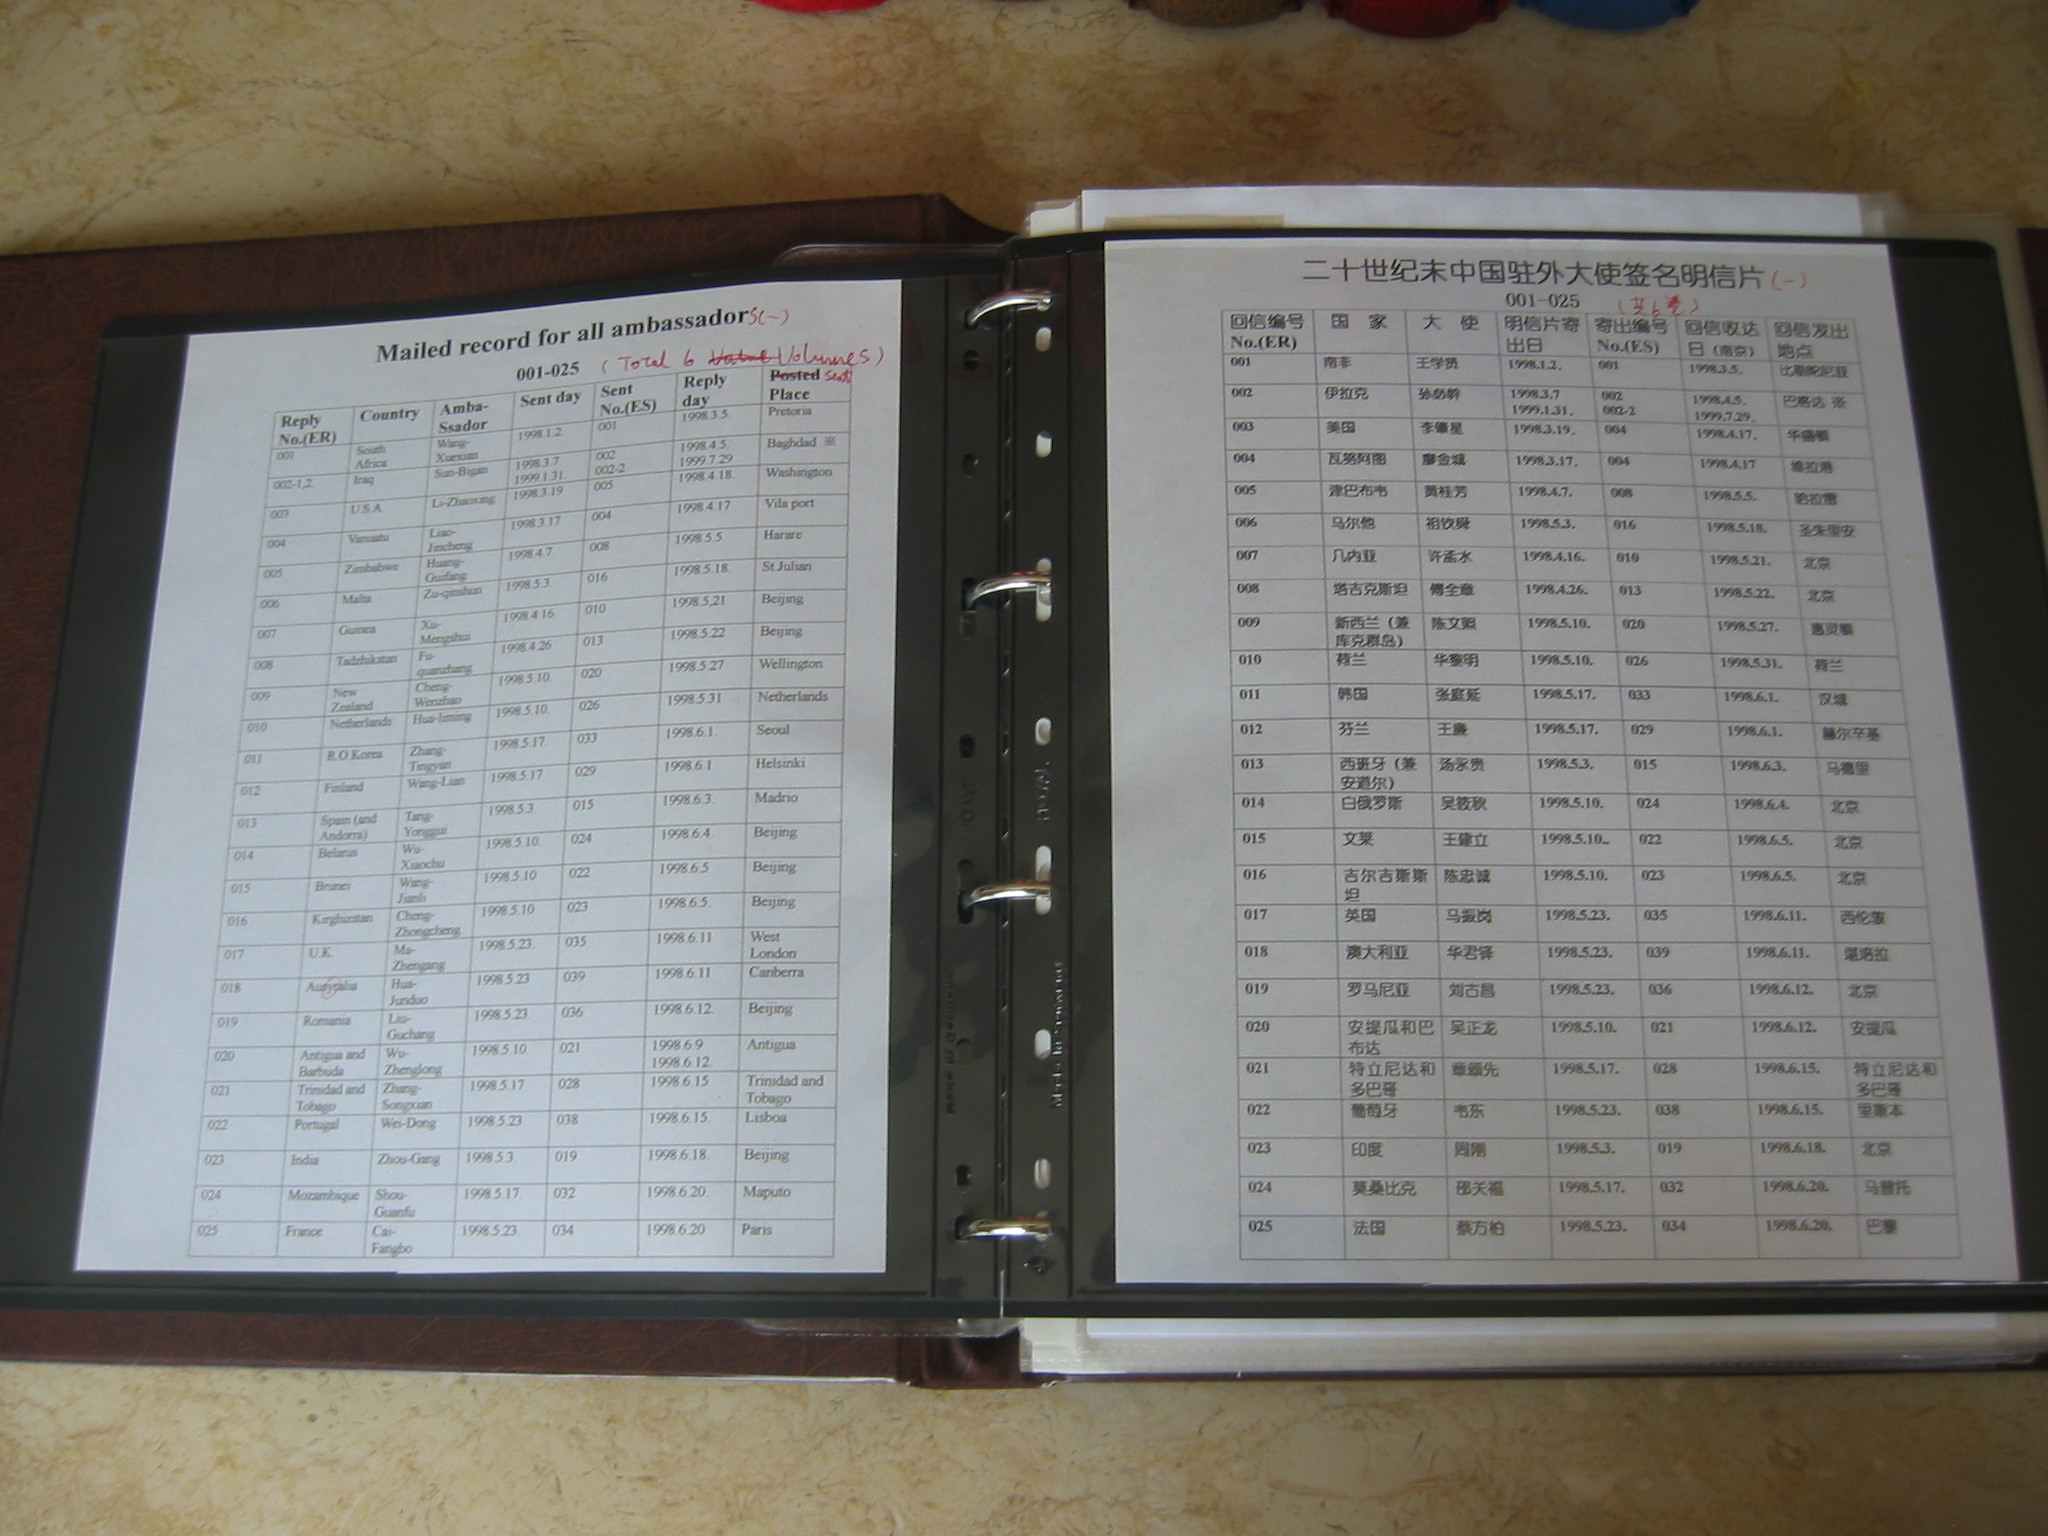 Mailed record for all ambassadors(一)
001-025 (Total 6 Volumes)
Reply No.(ER) Country Amba-Ssador Sent day Sent No.(ES) Reply day Posted Sent Place
001 South Africa Wang-Xuexian 1998.1.2. 001 1998.3.5. Pretoria
002-1,2. Iraq Sun-Bigan 1998.3.7 1999.1.31. 002 002-2 1998.4.5. 1999.7.29 Baghdad ※
003 U.S.A. Li-Zhaoxing 1998.3.19 005 1998.4.18. Washington
004 Vanuatu Liao-Jincheng 1998.3.17 004 1998.4.17 Vila port
005 Zimbabwe Huang-Guifang 1998.4.7. 008 1998.5.5. Harare
006 Malta Zu-qinshun 1998.5.3. 016 1998.5.18. St.Julian
007 Guinea Xu-Mengshui 1998.4.16 010 1998.5.21 Beijing
008 Tadzhikstan Fu-quanzhang 1998.4.26 013 1998.5.22 Beijing
009 New Zealand Cheng-Wenzhao 1998.5.10. 020 1998.5.27 Wellington
010 Netherlands Hua-liming 1998.5.10. 026 1998.5.31 Netherlands
011 R.O.Korea Zhang-Tingyan 1998.5.17. 033 1998.6.1. Seoul
012 Finland Wang-Lian 1998.5.17 029 1998.6.1 Helsinki
013 Spain (and Andorra) Tang-Yonggui 1998.5.3. 015 1998.6.3. Madrio
014 Belarus Wu-Xiaochu 1998.5.10. 024 1998.6.4. Beijing
015 Brunei Wang-Jianli 1998.5.10 022 1998.6.5 Beijing
016 Kirghizstan Cheng-Zhongcheng 1998.5.10 023 1998.6.5. Beijing
017 U.K. Ma-Zhengang 1998.5.23. 035 1998.6.11 West London
018 Australia Hua-Junduo 1998.5.23 039 1998.6.11 Canberra
019 Romania Liu-Guchang 1998.5.23 036 1998.6.12. Beijing
020 Antigua and Barbuda Wu-Zhenglong 1998.5.10. 021 1998.6.9 1998.6.12. Antigua
021 Trinidad and Tobago Zhang-Songxian 1998.5.17 028 1998.6.15 Trinidad and Tobago
022 Portugal Wei-Dong 1998.5.23 038 1998.6.15. Lisboa
023 India Zhou-Gang 1998.5.3. 019 1998.6.18. Beijing
024 Mozambique Shou-Guanfu 1998.5.17. 032 1998.6.20. Maputo
025 France Cai-Fangbo 1998.5.23. 034 1998.6.20 Paris
二十世纪末中国驻外大使签名明信片(一)
001-025 (共6卷)
回信编号 No.(ER) 国 家 大 使 明信片寄出日 寄出编号 No.(ES) 回信收达日（南京） 回信发出地点
001 南非 王学贤 1998.1.2. 001 1998.3.5. 比勒陀尼亚
002 伊拉克 孙必幹 1998.3.7 1999.1.31. 002 002-2 1998.4.5. 1999.7.29. 巴格达 ※
003 美国 李肇星 1998.3.19. 004 1998.4.17. 华盛顿
004 瓦努阿图 廖金城 1998.3.17. 004 1998.4.17 维拉港
005 津巴布韦 黄桂芳 1998.4.7. 008 1998.5.5. 哈拉雷
006 马尔他 祖钦舜 1998.5.3. 016 1998.5.18. 圣朱里安
007 几内亚 许孟水 1998.4.16. 010 1998.5.21. 北京
008 塔吉克斯坦 傅全章 1998.4.26. 013 1998.5.22. 北京
009 新西兰（兼库克群岛） 陈文照 1998.5.10. 020 1998.5.27. 惠灵顿
010 荷兰 华黎明 1998.5.10. 026 1998.5.31. 荷兰
011 韩国 张庭延 1998.5.17. 033 1998.6.1. 汉城
012 芬兰 王廉 1998.5.17. 029 1998.6.1. 赫尔辛基
013 西班牙（兼安道尔） 汤永贵 1998.5.3. 015 1998.6.3. 马德里
014 白俄罗斯 吴筱秋 1998.5.10. 024 1998.6.4. 北京
015 文莱 王建立 1998.5.10.. 022 1998.6.5. 北京
016 吉尔吉斯斯坦 陈忠诚 1998.5.10. 023 1998.6.5. 北京
017 英国 马振岗 1998.5.23. 035 1998.6.11. 西伦敦
018 澳大利亚 华君铎 1998.5.23. 039 1998.6.11. 堪培拉
019 罗马尼亚 刘古昌 1998.5.23. 036 1998.6.12. 北京
020 安提瓜和巴布达 吴正龙 1998.5.10. 021 1998.6.12. 安提瓜
021 特立尼达和多巴哥 章颂先 1998.5.17. 028 1998.6.15. 特立尼达和多巴哥
022 葡萄牙 韦东 1998.5.23. 038 1998.6.15. 里斯本
023 印度 周刚 1998.5.3. 019 1998.6.18. 北京
024 莫桑比克 邵关福 1998.5.17. 032 1998.6.20. 马普托
025 法国 蔡方柏 1998.5.23. 034 1998.6.20. 巴黎